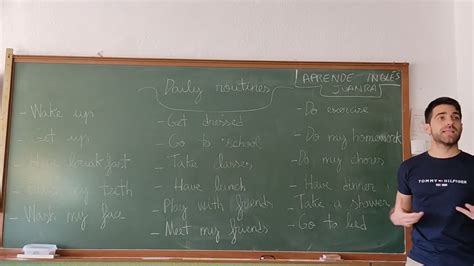 Daily routines
APRENDE INGLÉS
JUANRA
- Wake up
- Get up
- Have breakfast
- my teeth
- Wash my face
- Get dressed
- Go to school
- Take classes
- Have lunch
- Play with friends
- Meet my friends
- Do exercise
- Do my homework
- Do my chores
- Have dinner
- Take a shower
- Go to bed
TOMMY HILFIGER